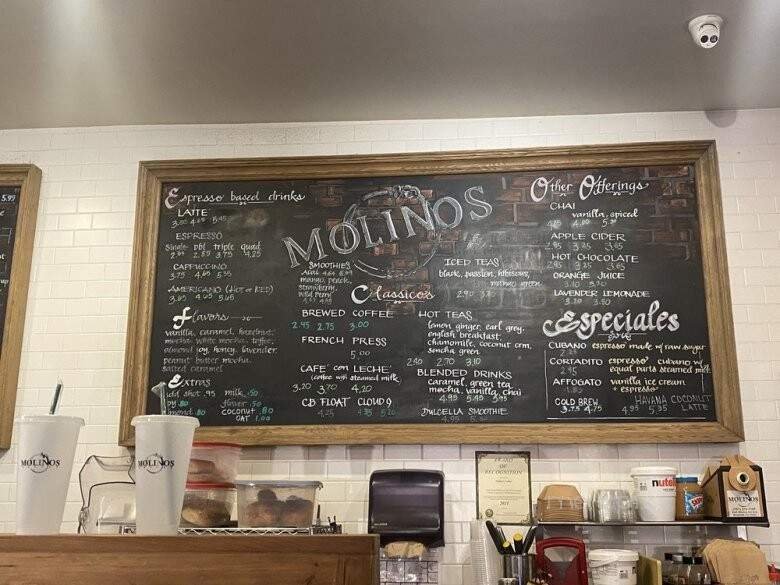 5.99
Espresso based drinks
LATTE
3.80 4.65 5.45
ESPRESSO
Single dbl triple quad
3.75 4.25
CAPPUCCINO
3.75 4.65 5.35
AMERICANO (HOT or ICED)
3.65 4.65 5.65
Flavors
vanilla, caramel, hazelnut,
mocha, white mocha, toffee,
almond joy, honey, lavender
peanut butter mocha,
salted caramel
Extras
add shot .95 milk .50
soy .80 flavor .50
almond .80 coconut .80
OAT 1.00
MOLINOS
SMOOTHIES
Acai
mango, peach,
strawberry,
wild berry
Classicos
BREWED COFFEE
2.45 2.75 3.00
FRENCH PRESS
5.00
CAFE' con LECHE'
(coffee w/ steamed milk)
3.20 3.70 4.20
CB FLOAT CLOUD 9
4.25 4.35 5.20
ICED TEAS
black, passion, hibiscus,
mango green
2.90
HOT TEAS
lemon ginger, earl grey,
english breakfast,
chamomile, coconut crm,
sencha green
2.40 2.70 3.10
BLENDED DRINKS
caramel, green tea
mocha, vanilla, chai
4.95 5.45 5.95
DULCELLA SMOOTHIE
4.95 5.95
Other Offerings
CHAI
vanilla, spiced
APPLE CIDER
2.95 3.25 3.65
HOT CHOCOLATE
2.95 3.25 3.65
ORANGE JUICE
LAVENDER LEMONADE
3.10 3.50
Especiales
CUBANO espresso made w/ raw sugar
CORTADITO espresso cubano w/
equal parts steamed milk
AFFOGATO vanilla ice cream
+ espresso
COLD BREW HAVANA COCONUT
3.75 4.75 4.95 5.35 LATTE
MOLINOS
MOLINOS
AWARD OF
RECOGNITION
nutella
MOLINOS